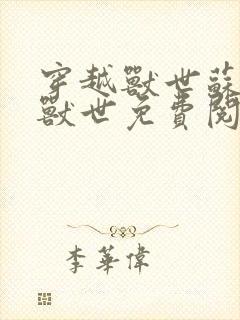 穿越獸世蘇
獸世免費閱
李華偉